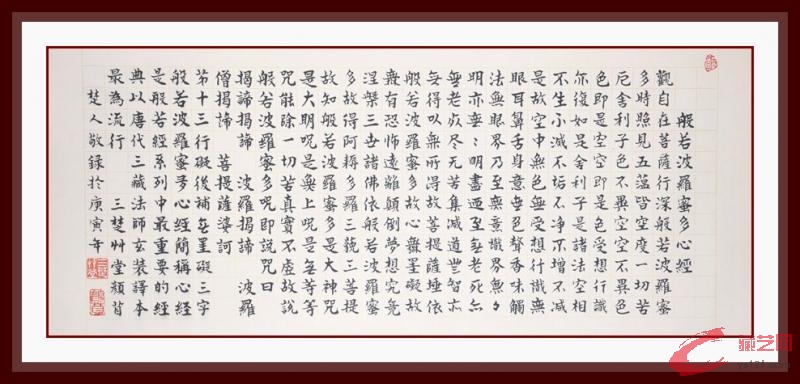 般若波羅蜜多心經
觀自在菩薩行深般若波羅蜜
多時照見五蘊皆空度一切苦
厄舍利子色不異空空不異色
色即是空空即是色受想行識
亦復如是舍利子是諸法空相
不生不滅不垢不淨不增不減
是故空中無色無受想行識無
眼耳鼻舌身意無色聲香味觸
法無眼界乃至無意識界無々
明亦無々明盡迺至無老死亦
無老死盡無苦集滅道無智亦
無得以無所得故菩提薩埵依
般若波羅蜜多故心無罣礙故
無有恐怖遠離顛倒夢想究竟
涅槃三世諸佛依般若波羅蜜
多故得阿耨多羅三藐三菩提
故知般若波羅蜜多是大神咒
是大明咒是無上咒是無等等
咒能除一切苦真實不虛故說
般若波羅蜜多咒即說咒曰
揭諦揭諦 波羅揭諦 波羅
僧揭諦 菩提薩婆訶
苐十三行礙後補無罣礙三字
般若波羅蜜多心經簡稱心經
是般若經系列中最重要的經
典以唐代三藏法師玄奘譯本
最為流行 三楚艸堂
楚人敬録於庚寅年
藏艺网